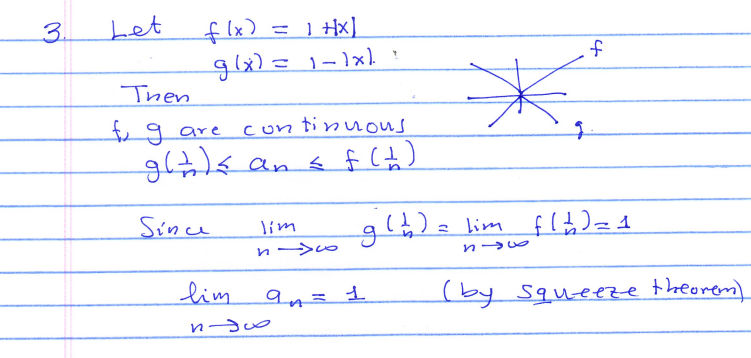 3. Let f(x) = 1+|x|
g(x) = 1-|x|.
f
Then
f, g are continuous
g.
g(1/n) ≤ an ≤ f(1/n)
Since lim n→∞ g(1/n) = lim n→∞ f(1/n) = 1
lim n→∞ an = 1 (by squeeze theorem)